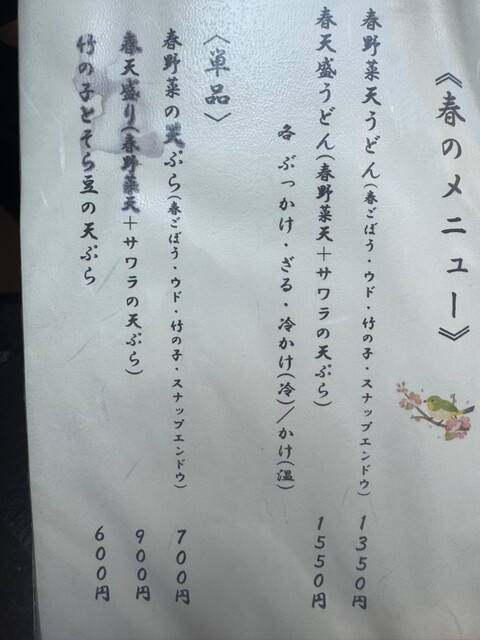 《春のメニュー》
春野菜天うどん(春ごぼう・ウド・竹の子・スナップエンドウ) 1350円
春天盛うどん(春野菜天+サワラの天ぷら) 1550円
各 ぶっかけ・ざる・冷かけ(冷)/かけ(温)
〈単品〉
春野菜の天ぷら(春ごぼう・ウド・竹の子・スナップエンドウ) 700円
春天盛り(春野菜天+サワラの天ぷら) 900円
竹の子とそら豆の天ぷら 600円